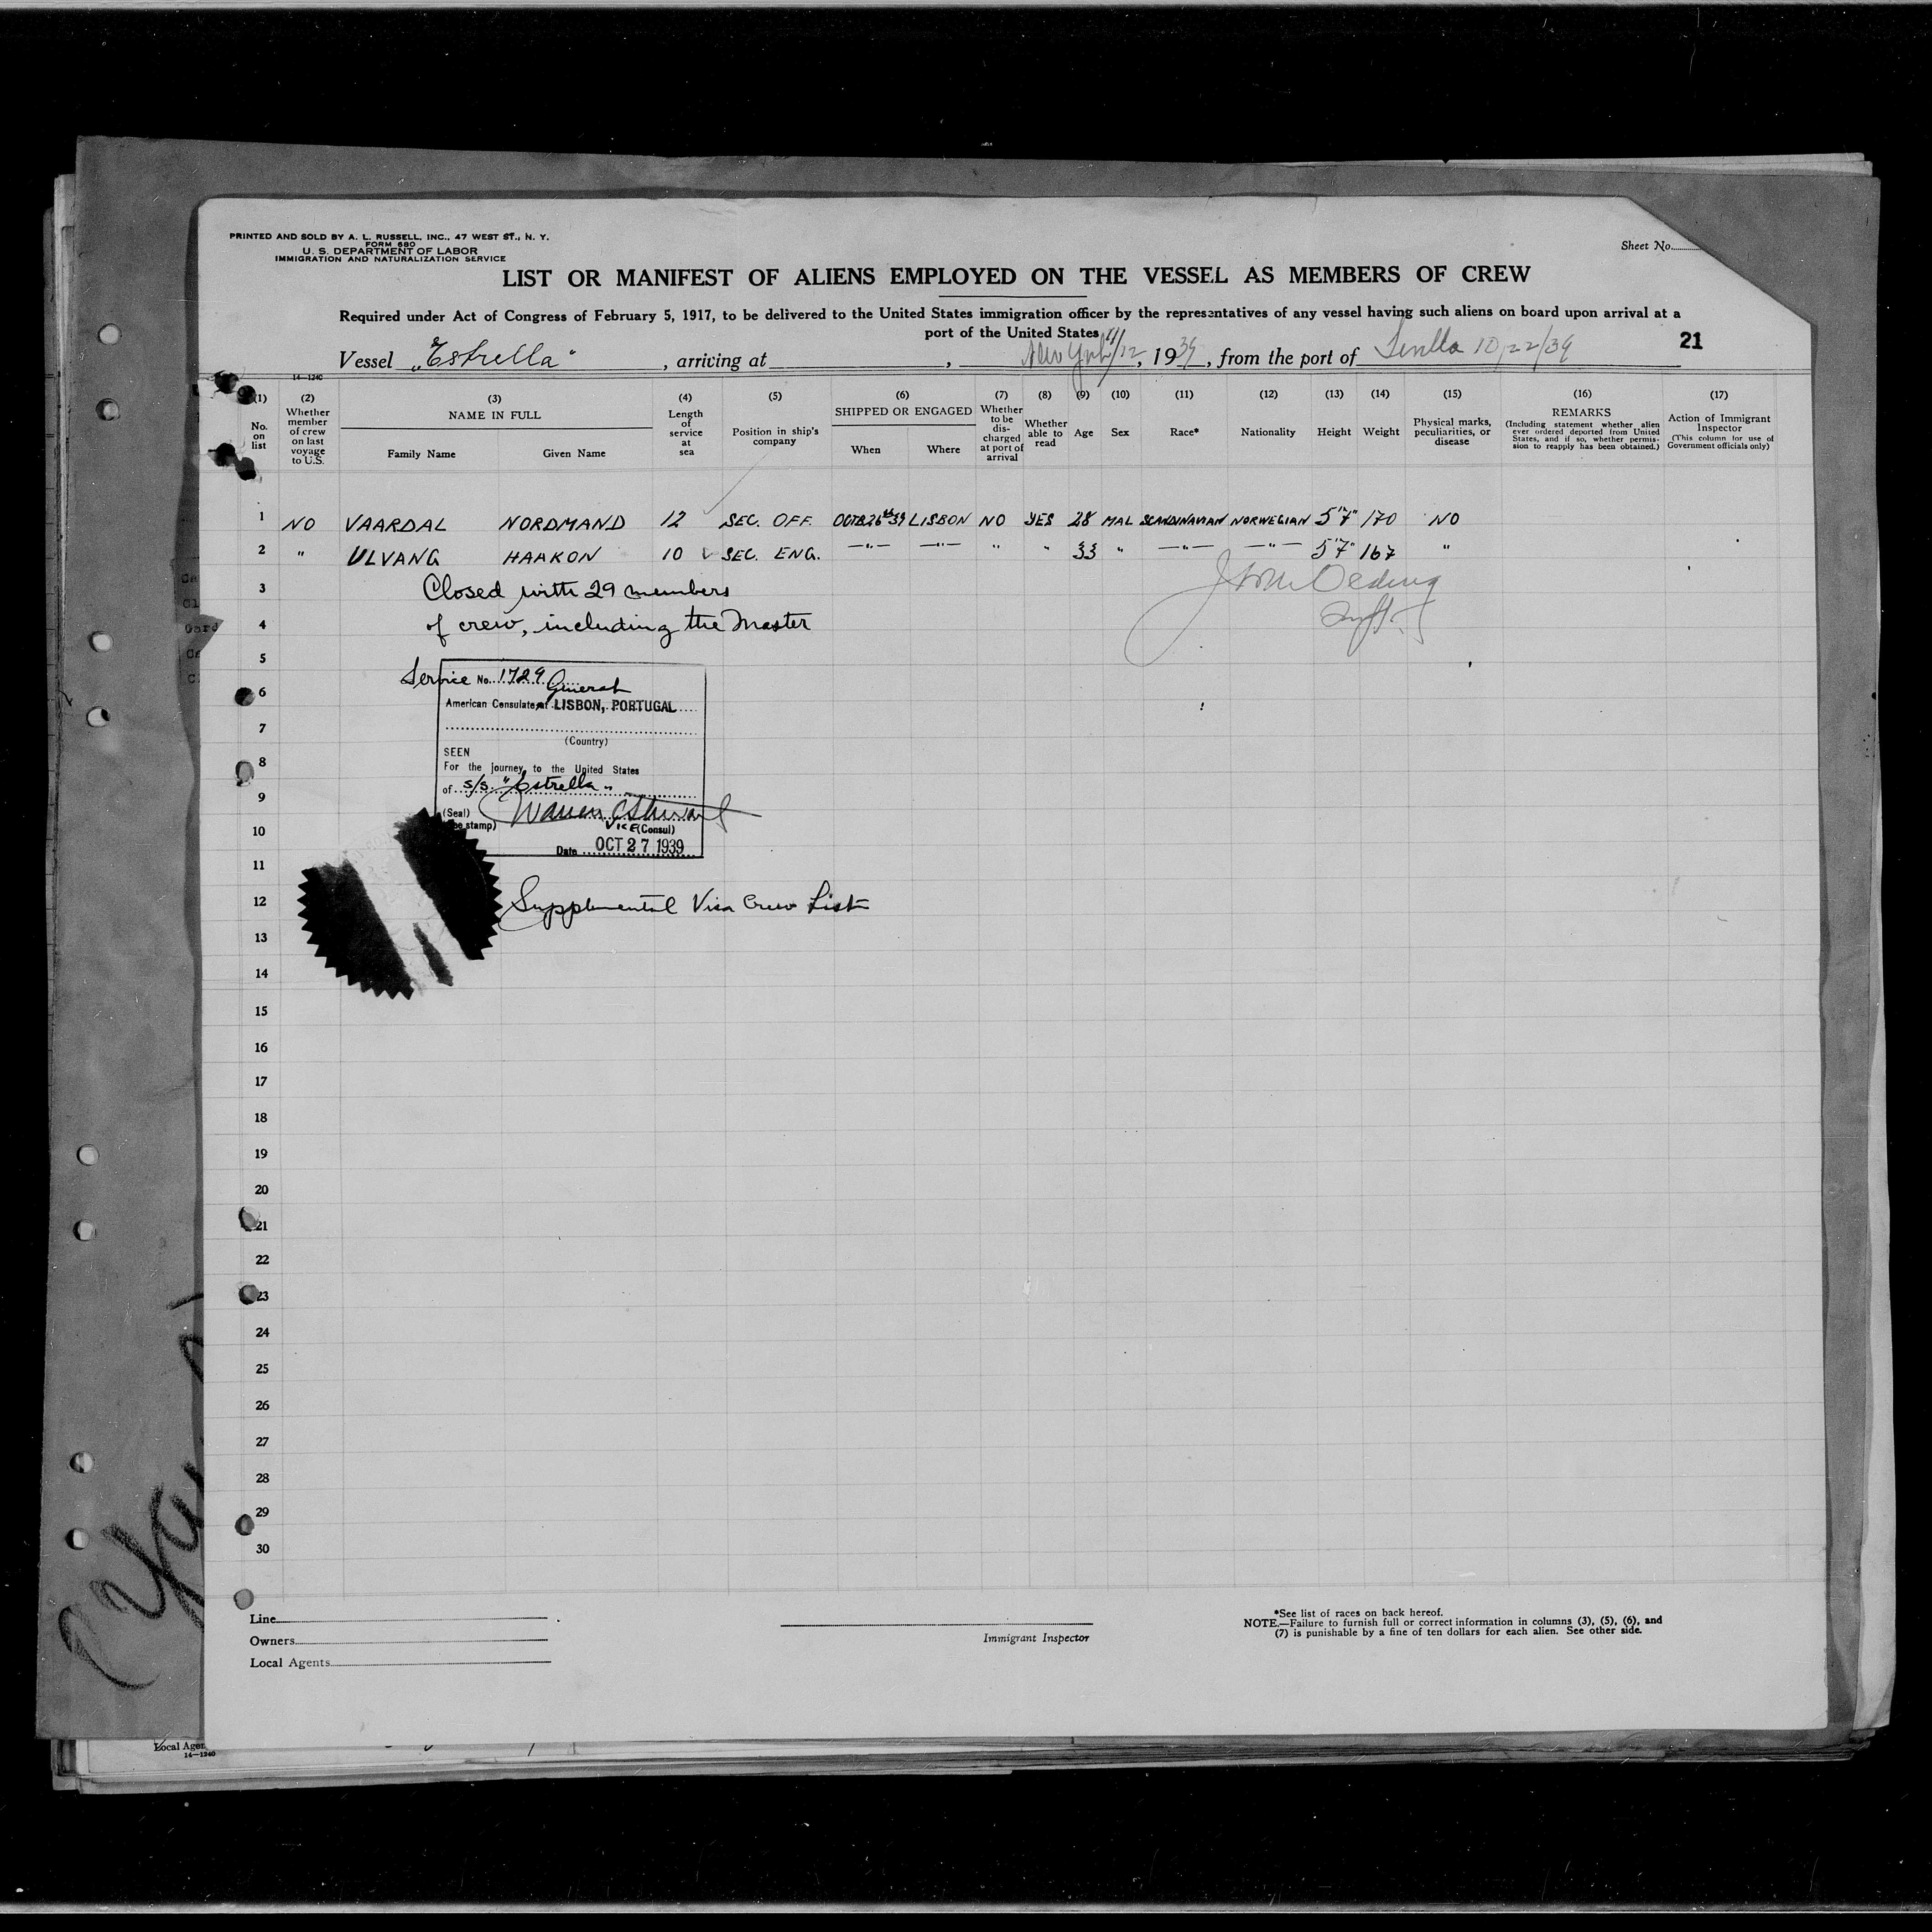 PRINTED AND SOLD BY A. L. RUSSELL, INC., 47 WEST ST., N. Y.
FORM 680
U. S. DEPARTMENT OF LABOR
IMMIGRATION AND NATURALIZATION SERVICE
Sheet No.
LIST OR MANIFEST OF ALIENS EMPLOYED ON THE VESSEL AS MEMBERS OF CREW
Required under Act of Congress of February 5, 1917, to be delivered to the United States immigration officer by the representatives of any vessel having such aliens on board upon arrival at a
port of the United States
21
Vessel „Estrella“, arriving at , New York 11/12, 1939, from the port of 10/22/39
14—1240
(1) (2) (3) (4) (5) (6) (7) (8) (9) (10) (11) (12) (13) (14) (15) (16) (17)
No. on list
Whether member of crew on last voyage to U.S.
NAME IN FULL
Family Name Given Name
Length of service at sea
Position in ship's company
SHIPPED OR ENGAGED
When Where
Whether to be discharged at port of arrival
Whether able to read
Age
Sex
Race*
Nationality
Height
Weight
Physical marks, peculiarities, or disease
REMARKS
(Including statement whether alien ever ordered deported from United States, and if so, whether permission to reapply has been obtained.)
Action of Immigrant Inspector
(This column for use of Government officials only)
1 NO VAARDAL NORDMAND 12 SEC. OFF. OCTB.26th39 LISBON NO YES 28 MAL SCANDINAVIAN NORWEGIAN 5'7" 170 NO
2 " ULVANG HAAKON 10 SEC. ENG. —"— —"— " " 33 " —"— —"— 5'7" 167 "
3 Closed with 29 members
4 of crew, including the Master
5
Service No. 1729
6
General
American Consulate at LISBON, PORTUGAL
7
(Country)
SEEN
8
For the journey to the United States
of s/s. "Estrella"
9
(Seal)
stamp)
10
VICE (Consul)
Date OCT 27 1939
11
12 Supplemental Visa Crew List
13
14
15
16
17
18
19
20
21
22
23
24
25
26
27
28
29
30
Line
Owners
Local Agents
Immigrant Inspector
*See list of races on back hereof.
NOTE.—Failure to furnish full or correct information in columns (3), (5), (6), and
(7) is punishable by a fine of ten dollars for each alien. See other side.
Local Agen
14—1240